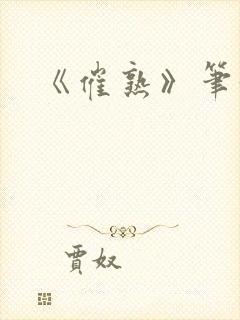 《催熟》筆
賈奴